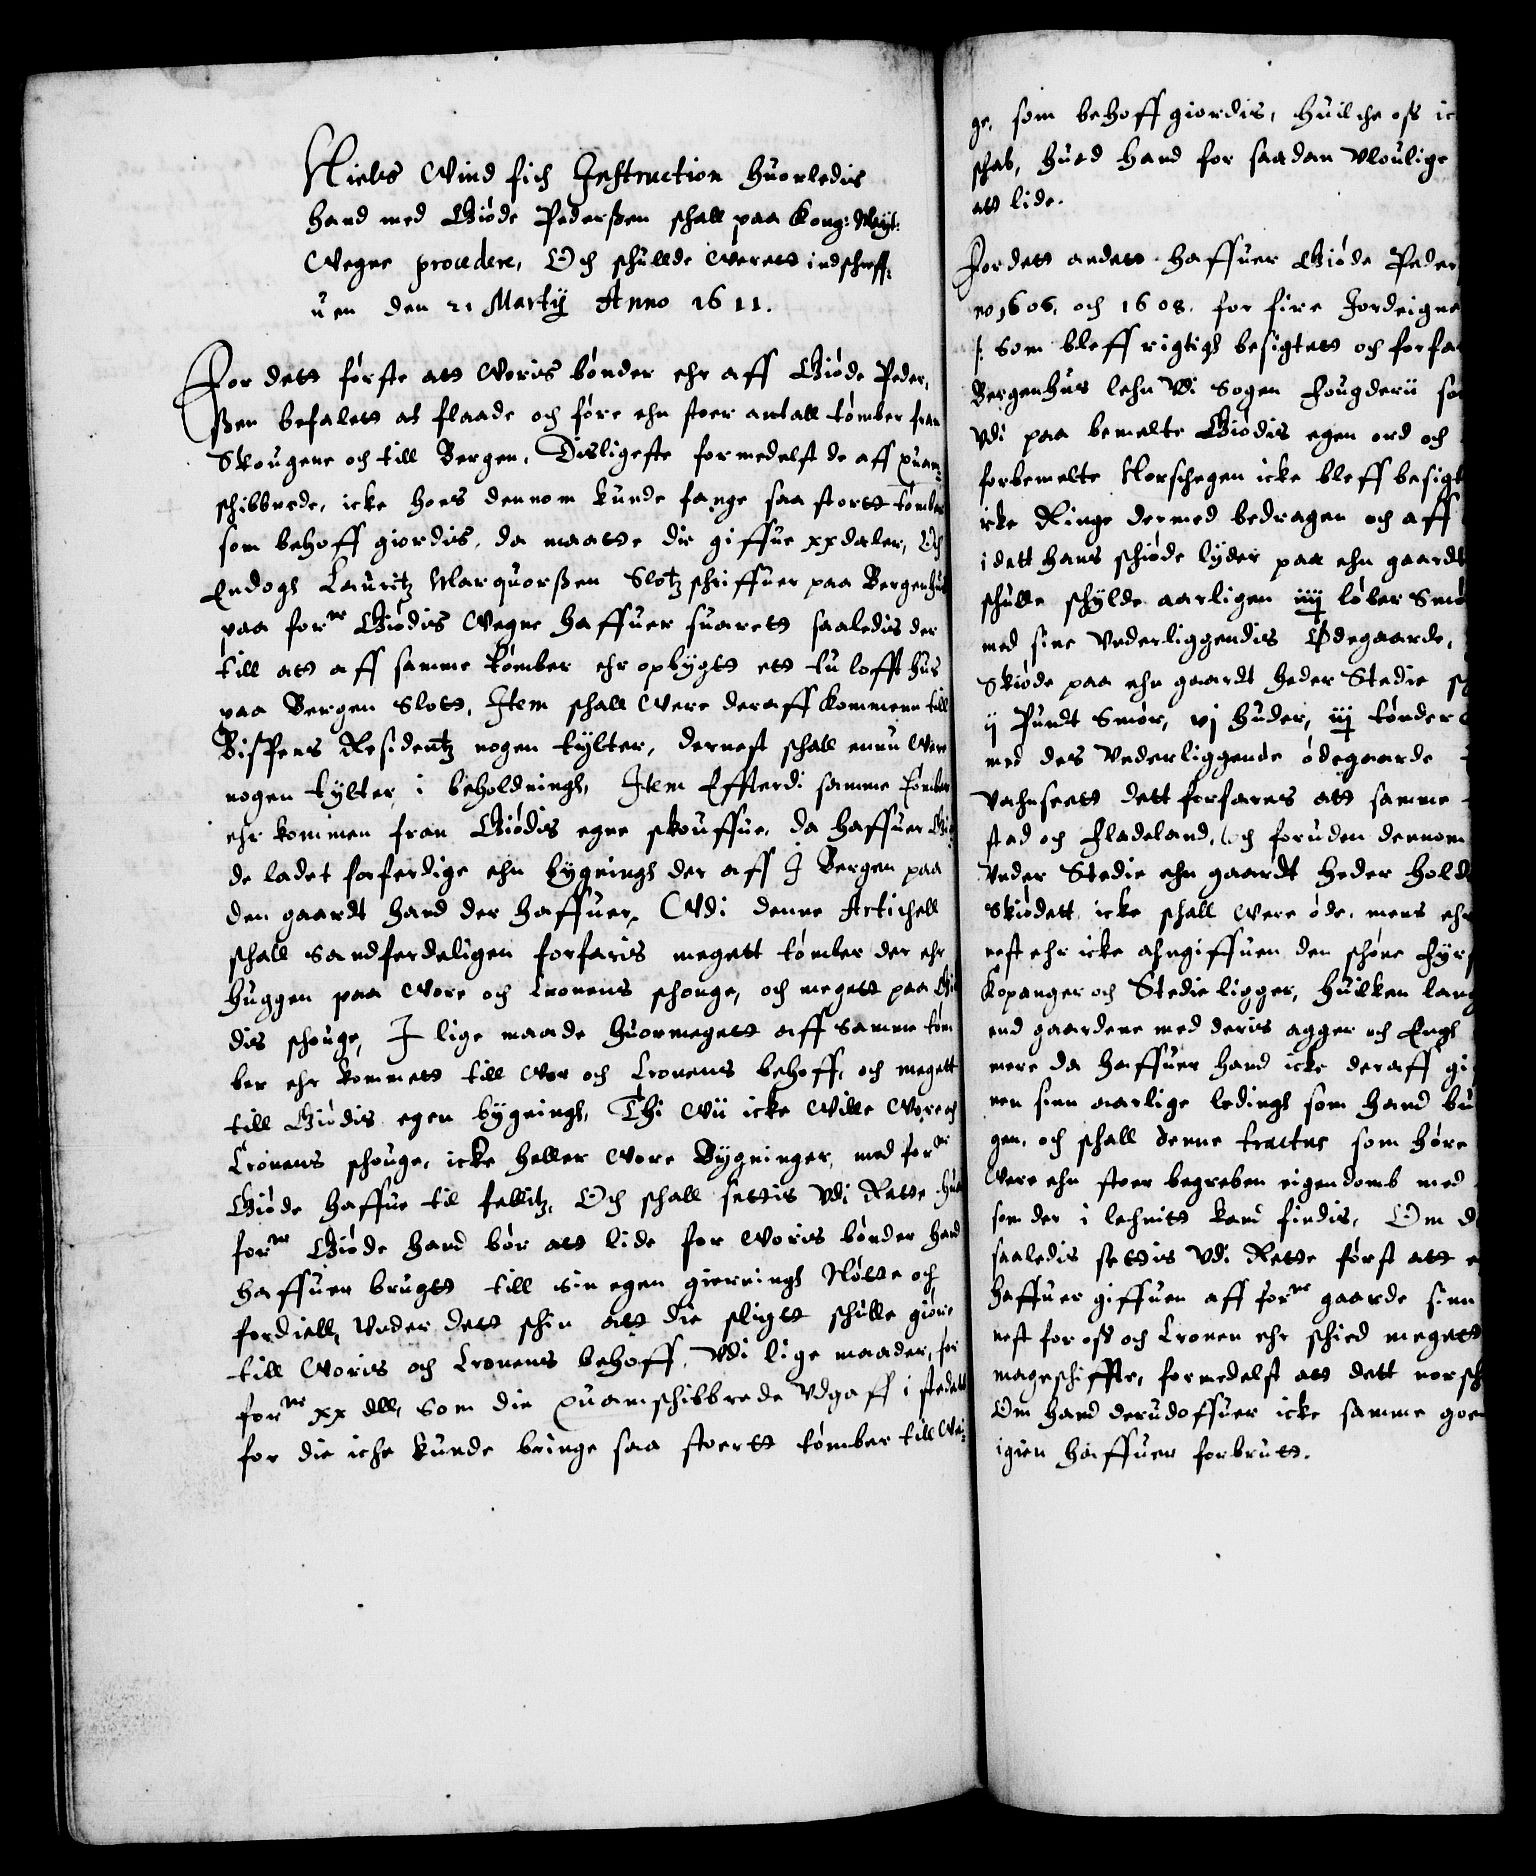 Niels Wind fich Instruction huorledis
hand med Giøde Pederßen schall paa Kong: Mayt:
Wegne procedere, Och schullde Werett indschreff-
uen den 21 Martij Anno 1611.
For dett første att Woris bønder ehr aff Giøde Peder-
ßen befalett att flaade och føre ehn stoer antall tømber fran
Skougene och till Bergen, Disligeste formedelst de aff Quam-
schibbrede, icke hoes dennom kunde fange saa stortt tømber
som behoff giordis, da maatte die giffue xx daler, Och
Endogh Lauritz Marquorßen Slotz schriffuer paa Bergenhus
paa forne Giødis Wegne haffuer suarett saaledis der
till att aff samme tømber ehr opbygtt ett tu lofft hus
paa Bergen Slott, Item schall Were deraff kommenn till
Bispens Residentz nogen tylter, dernest schall ennu Were
nogen tylter i beholdningh, Item Effterdi samme tømber
ehr kommen fran Giødis egne skouffue, da haffuer Giø-
de ladet forferdige ehn bygningh der aff I Bergen paa
den gaardt hand der haffuer, Wdi denne Artichell
schall Sandferdeligen forfaris megett tømber der ehr
huggen paa Wore och Cronens schouge, och megett paa Giø
dis schouge, I lige maade huormegett aff samme tøm
ber ehr kommett till Wor och Cronens behoff, och megett
till Giødis egen bygningh, Thi Wii icke Wille Wore och
Cronens schouge, icke heller Wore Bygninger, med forne
Giøde haffue til fellitz, Och schall settis Vdi Rette huad
forne Giøde hand bør att lide for Woris bønder hand
haffuer brugtt till sin egen giernings Nøtte och
fordiell, Vnder dett schin att die sligtt schulle giøre
till Woris och Cronens behoff, Vdi lige maader, for
forne xx dll, Som die Quamschibbrede Vdgaff i stedett
for die iche kunde bringe saa stoertt tømber till We-
ge, som behoff giordis, huilche oss ic
schab, hued hand for saadan Vloulige
att lide.
For dett andett haffuer Giøde Peder
no 1606, och 1608. for fire Jordeigne
som bleff rigtigh besigtett och forfa
Bergenhus lehn Vdi Sogen fougderii so
Vdi paa bemelte Giødis egen ord och
forbemelte Norschegen icke bleff besigt
icke Ringe dermed bedragen och aff
i dett hans schiøde lyder paa ehn gaardt
schulle schylde aarligen iiij løber Smø
med sine Vnderliggendis Ødegaarde,
Skiøde paa ehn gaardt heder Stedie sc
ij Pundt Smør, vj huder, iij tønder
med des Vnderliggende ødegaarde
Vahnseett dett forfares att samme
stad och Fladeland, och foruden dennom
Vnder Stedie ehn gaardt heder hold
Skiødett icke schall Were øde, mens ehr
nest ehr icke ahngiffuen den schøne fyr
Kopanger och Stedie ligger, huilken lang
end gaardene med deris agger och Engh
mere da haffuer hand icke deraff gi
nen sinn aarlige ledingh som hand bu
gen, och schall denne tractus som høre
Were ehn stoer begreben eigendomb med
som der i lehnitt kand findis, Om d
saaledis settis Vdi Rette først att e
haffuer giffuen aff forne gaarde sinn
nest for oss och Cronen ehr schied megett
mageschiffte, formedelst att dett norsch
Om hand derudoffuer icke samme goe
igien haffuer forbrutt.